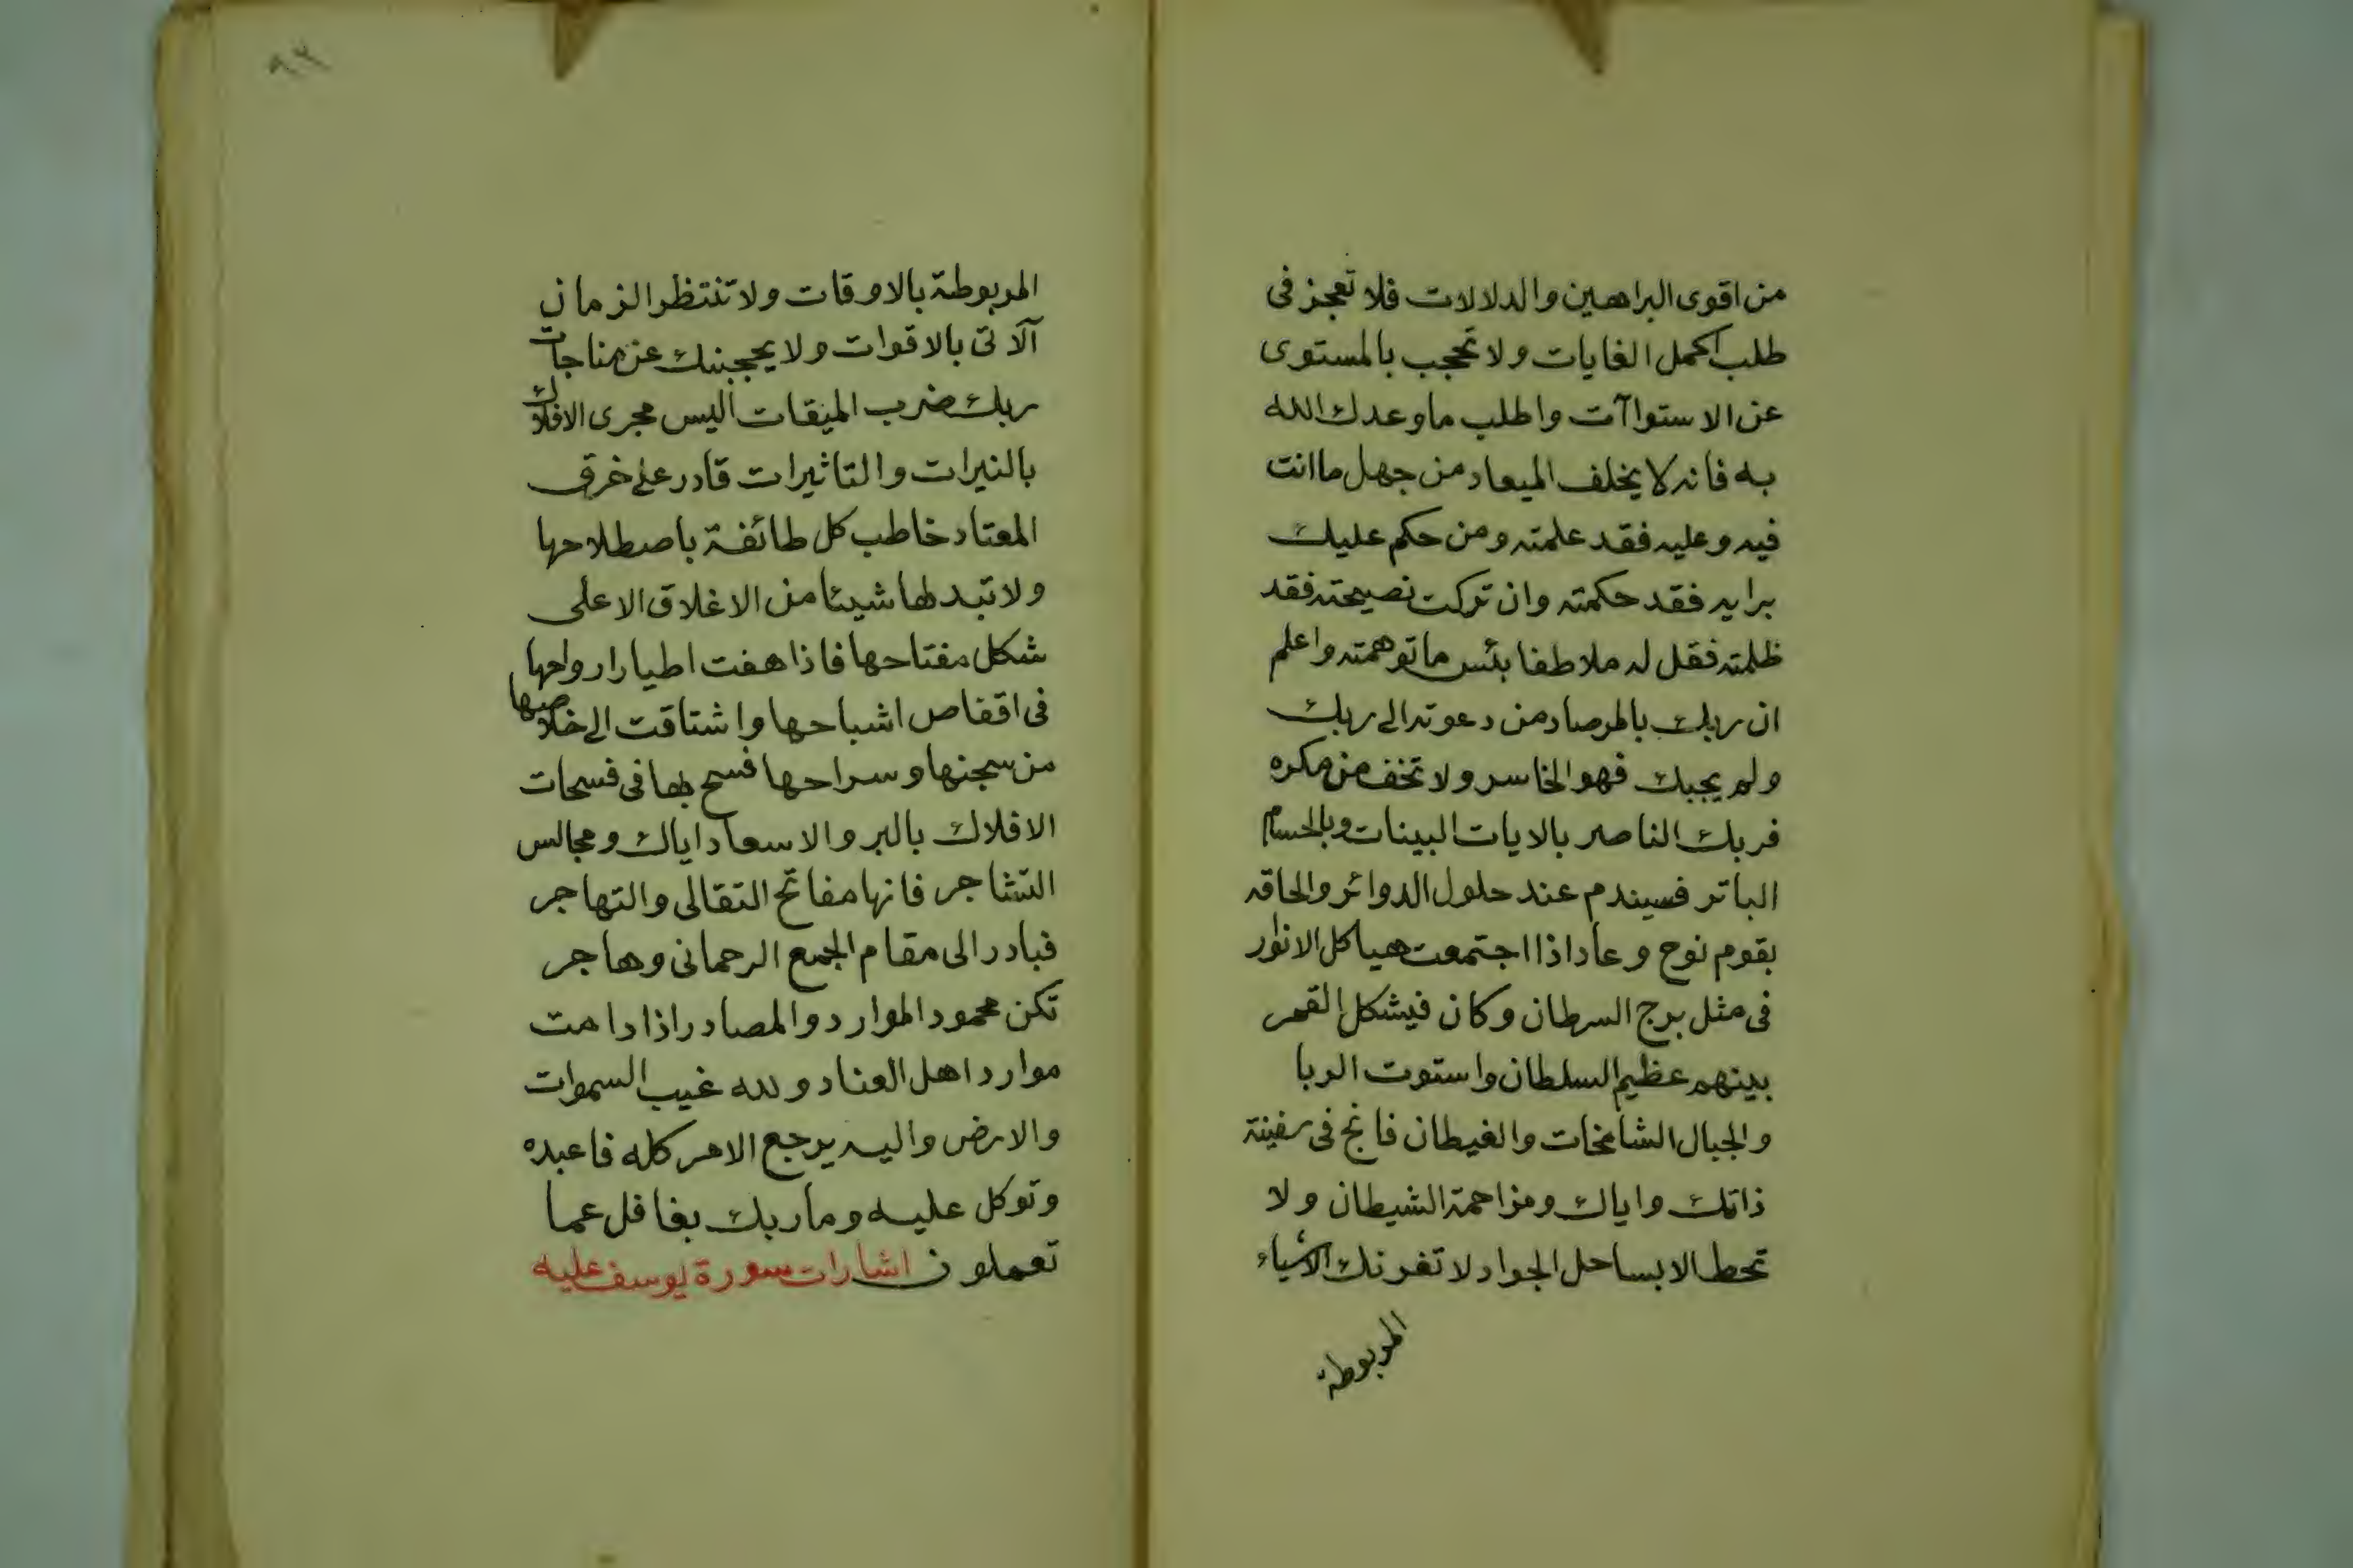 من اقوى البراهين والدلالات فلا تعجز فى
طلب اكمل الغايات ولا تحجب بالمستوى
عن الاستواآت واطلب ما وعدك الله
به فانه لا يخلف الميعاد من جهل ما انت
فيه وعليه فقد علمته ومن حكم عليك
برايه فقد حكمته وان تركت نصيحته فقد
ظلمته فقل له ملاطفا بئس ما توهمته واعلم
ان ربك بالمرصاد من دعوته الى ربك
ولم يجبك فهو الخاسر ولا تخف من مكره
فربك الناصر بالايات البينات وبالحسام
الباتر فسيندم عند حلول الدوائر والحاقه
بقوم نوح وعاد اذا اجتمعت هياكل الانوار
فى مثل برج السرطان وكان فيشكل القمر
بينهم عظيم السلطان واستوت الربا
والجبال الشامخات والغيطان فانج فى سفينة
ذاتك واياك ومزاحمة الشيطان ولا
تحط الا بساحل الجواد لا تغرنك الاشياء
المربوطة
٩٣
المربوطة بالاوقات ولا تنتظر الزمان
آلاتى بالاقوات ولا يحجبنك عن مناجات
ربك ضرب الميقات اليس مجرى الافلاك
بالنيرات والتاثيرات قادر على خرق
المعتاد خاطب كل طائفة باصطلاحها
ولا تبد لها شيئا من الاغلاق الا على
شكل مفتاحها فاذا هفت اطيار ارواحها
فى اقفاص اشباحها واشتاقت الى خلاصها
من سجنها وسراحها فسح بها فى فسحات
الافلاك بالبر والاسعاد اياك ومجالس
التشاجر فانها مفاتح التقالى والتهاجر
فبادر الى مقام الجمع الرحمانى وهاجر
تكن محمود الموارد والمصادر اذا دامت
موارد اهل العناد ولله غيب السموات
والارض واليه يرجع الامر كله فاعبده
وتوكل عليه وما ربك بغافل عما
تعملون اشارات سورة يوسف عليه